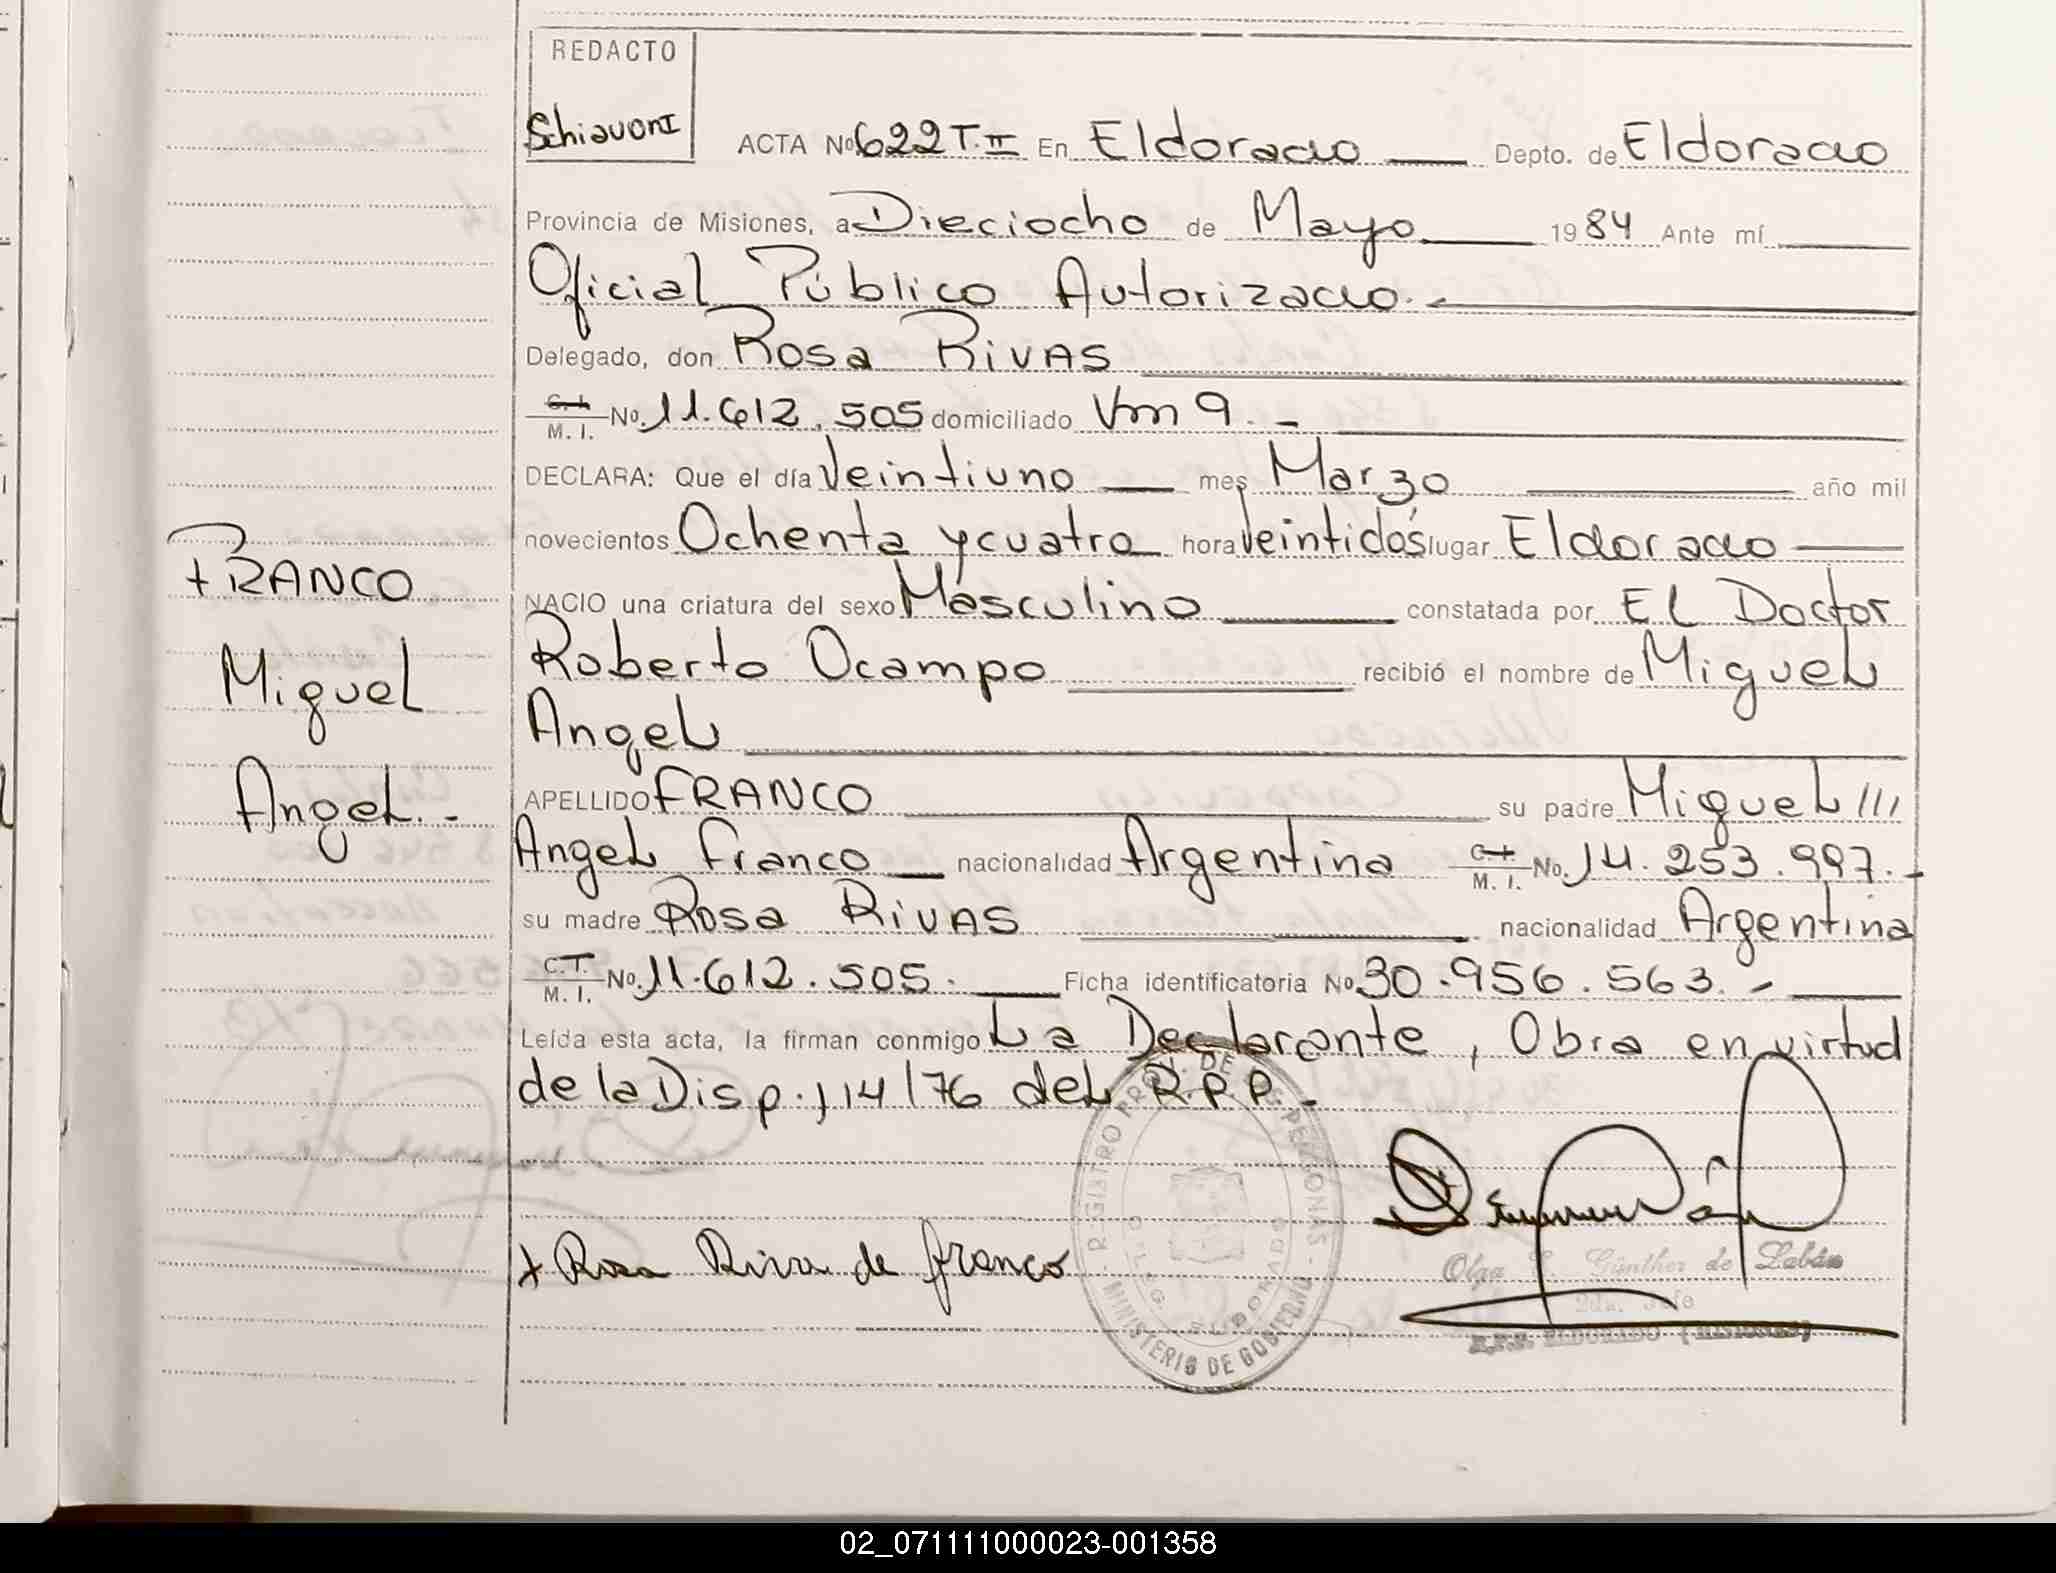 REDACTO
Schiavoni
ACTA No 622 T. II En Eldorado Depto. de Eldorado
Provincia de Misiones, a Dieciocho de Mayo 1984 Ante mí
Oficial Público Autorizado.-
Delegado, don Rosa Rivas
C.I. M. I. No. 11.612.505 domiciliado Km 9.-
DECLARA: Que el día Veintiuno mes Marzo año mil
novecientos Ochenta y cuatro hora Veintidós lugar Eldorado
NACIO una criatura del sexo Masculino constatada por El Doctor
Roberto Ocampo recibió el nombre de Miguel
Angel
APELLIDO FRANCO su padre Miguel ///
Angel Franco nacionalidad Argentina C.I. M. I. No. 14.253.997.-
su madre Rosa Rivas nacionalidad Argentina
C.I. M. I. No. 11.612.505. Ficha identificatoria No 30.956.563.-
Leída esta acta, la firman conmigo La Declarante, Obra en virtud
de la Disp. 114/76 del R.P.P.-
FRANCO
Miguel
Angel.-
+ Rosa Riva de franco
REGISTRO PROV. DE LAS PERSONAS - MINISTERIO DE GOBIERNO -
DELEG. SUBORADO
Olga Günther de Labán
2da. Jefe
ELDORADO (MISIONES)
02_071111000023-001358